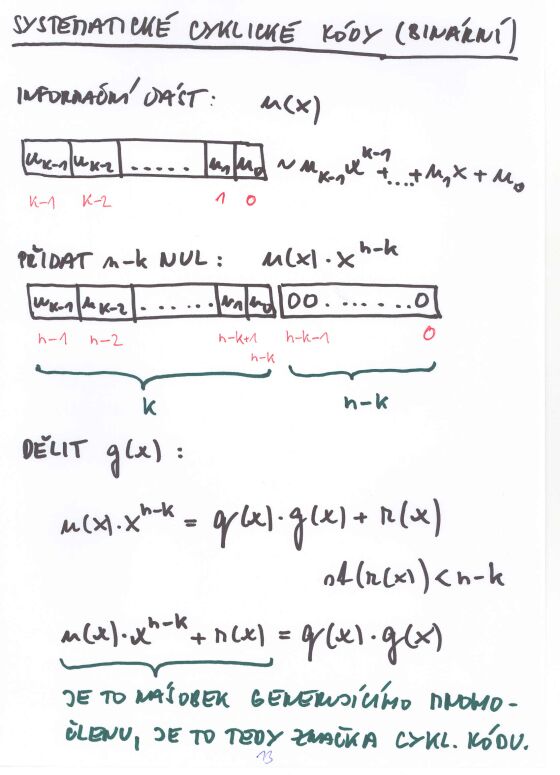 SYSTEMATICKÉ CYKLICKÉ KÓDY (BINÁRNÍ)
INFORMAČNÍ ČÁST: u(x)
u_{k-1} u_{k-2} ..... u_1 u_0 ~ u_{k-1}x^{k-1}+....+u_1x+u_0
k-1 k-2 1 0
PŘIDAT n-k NUL: u(x)·x^{n-k}
u_{k-1} u_{k-2} ...... u_1 u_0 00.......0
n-1 n-2 n-k+1 n-k-1 0
n-k
k n-k
DĚLIT g(x):
u(x)·x^{n-k} = q(x)·g(x)+r(x)
st(r(x))<n-k
u(x)·x^{n-k}+r(x) = q(x)·g(x)
JE TO NÁSOBEK GENERUJÍCÍHO MNOHO-
ČLENU, JE TO TEDY ZNAČKA CYKL. KÓDU.
13